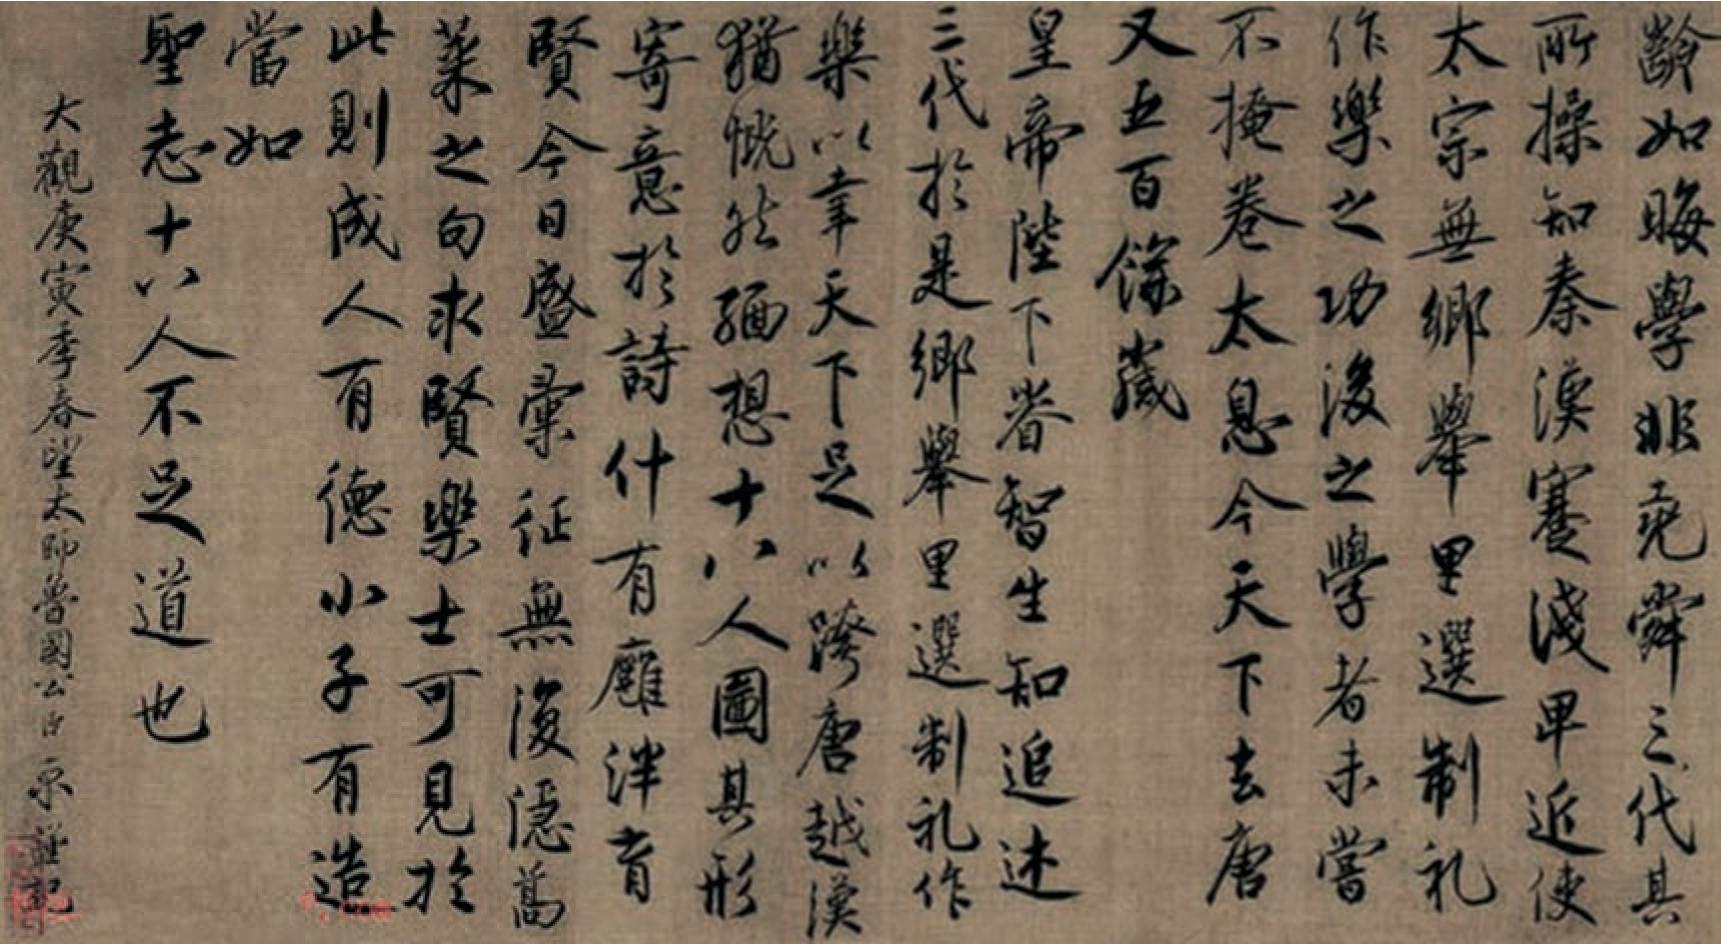 齡如晦學非堯舜三代其
所操知秦漢蹇淺卑近使
太宗無鄉舉里選制礼
作樂之功後之學者未嘗
不掩卷太息今天下去唐
又五百餘歲
皇帝陛下睿智生知追述
三代於是鄉舉里選制礼作
樂以幸天下足以跨唐越漢
猶慨然緬想十八人圖其形
寄意於詩什有廱泮育
賢今日盛彙征無復隱蒿
萊之句求賢樂士可見於
此則成人有德小子有造
當如
聖志十八人不足道也
大觀庚寅季春望太師魯國公臣京謹記